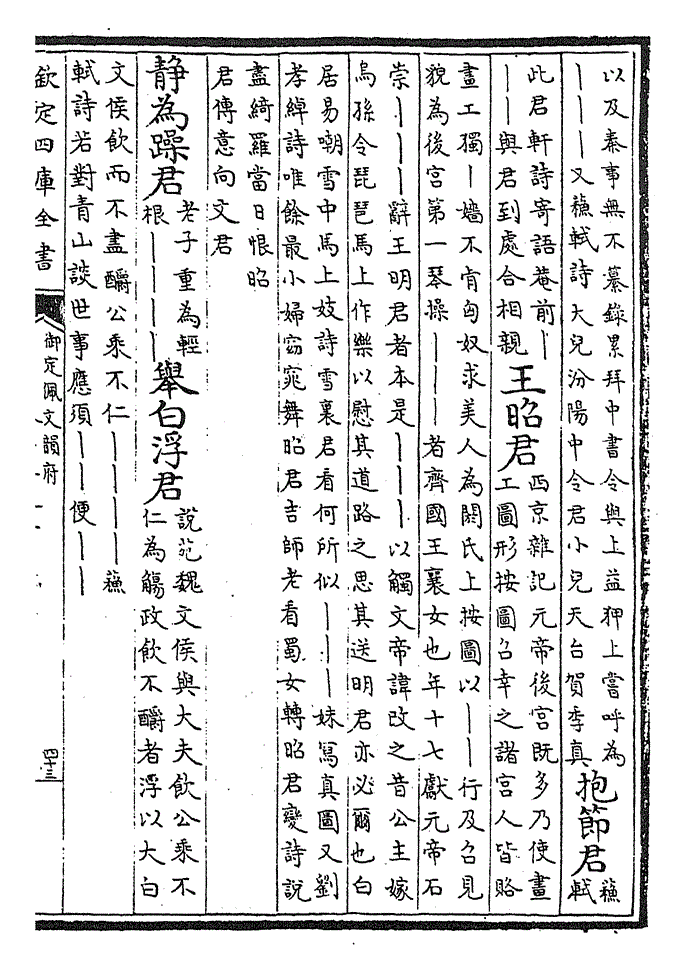 以及秦事無不綦錄累拜中書令與上益狎上嘗呼為
丨丨丨又蘇軾詩大兒汾陽中令君小兒天台賀季真
抱節君
蘇
軾
此君軒詩寄語菴前丨
丨丨與君到處合相親
王昭君
西京雜記元帝後宫既多乃使畫
工圖形按圖召幸之諸宫人皆賂
畫工獨丨嬙不肯匈奴求美人為閼氏上按圖以丨丨行及召見
貌為後宫第一琴操丨丨丨者齊國王襄女也年十七獻元帝石
崇丨丨丨辭王明君者本是丨丨丨以觸文帝諱改之昔公主嫁
烏孫令琵琶馬上作樂以慰其道路之思其送明君亦必爾也白
居易嘲雪中馬上妓詩雪裏君看何所似丨丨丨妹寫真圖又劉
孝綽詩唯餘最小婦窈窕舞昭君吉師老看蜀女轉昭君變詩說
盡綺羅當日恨昭
君傳意向文君
静為躁君
老子重為輕
根丨丨丨丨
舉白浮君
說苑魏文侯與大夫飲公乗不
仁為觴政飲不釂者浮以大白
文侯飲而不盡釂公乗不仁丨丨丨丨蘇
軾詩若對青山談世事應須丨丨便丨丨
欽定四庫全書
御定佩文韻府
四十三